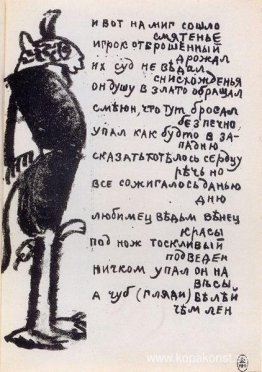 И ВОТ НА МИГ СОШЛО
СМЯТЕНЬЕ
ИГРОК ОТБРОШЕННЫЙ
ДРОЖАЛ
ИХ СУД НЕ ВѢДАЛ
СНИСХОЖДЕНЬЯ
ОН ДУШУ В ЗЛАТО ОБРАЩАЛ
СМѢЮН, ЧТО ТУТ БРОСАЛ
БЕЗПЕЧНО,
УПАЛ КАК БУДТО В ЗА-
ПАДНЮ
СКАЗАТЬ ХОТѢЛОСЬ СЕРДЦУ
РѢЧЬ НО
ВСЕ СОЖИГАЛОСЬ ДАНЬЮ
ДНЮ
ЛЮБИМЕЦ ВѢДЬМ ВѢНЕЦ
КРАСЫ
ПОД НОЖ ТОСКЛИВЫЙ
ПОДВЕДЕН
НИЧКОМ УПАЛ ОН НА
ВѢСЫ
А ЧУБ (ГЛЯДИ) БѢЛѢЙ
ЧѢМ ЛЕН
www.kopakonst.